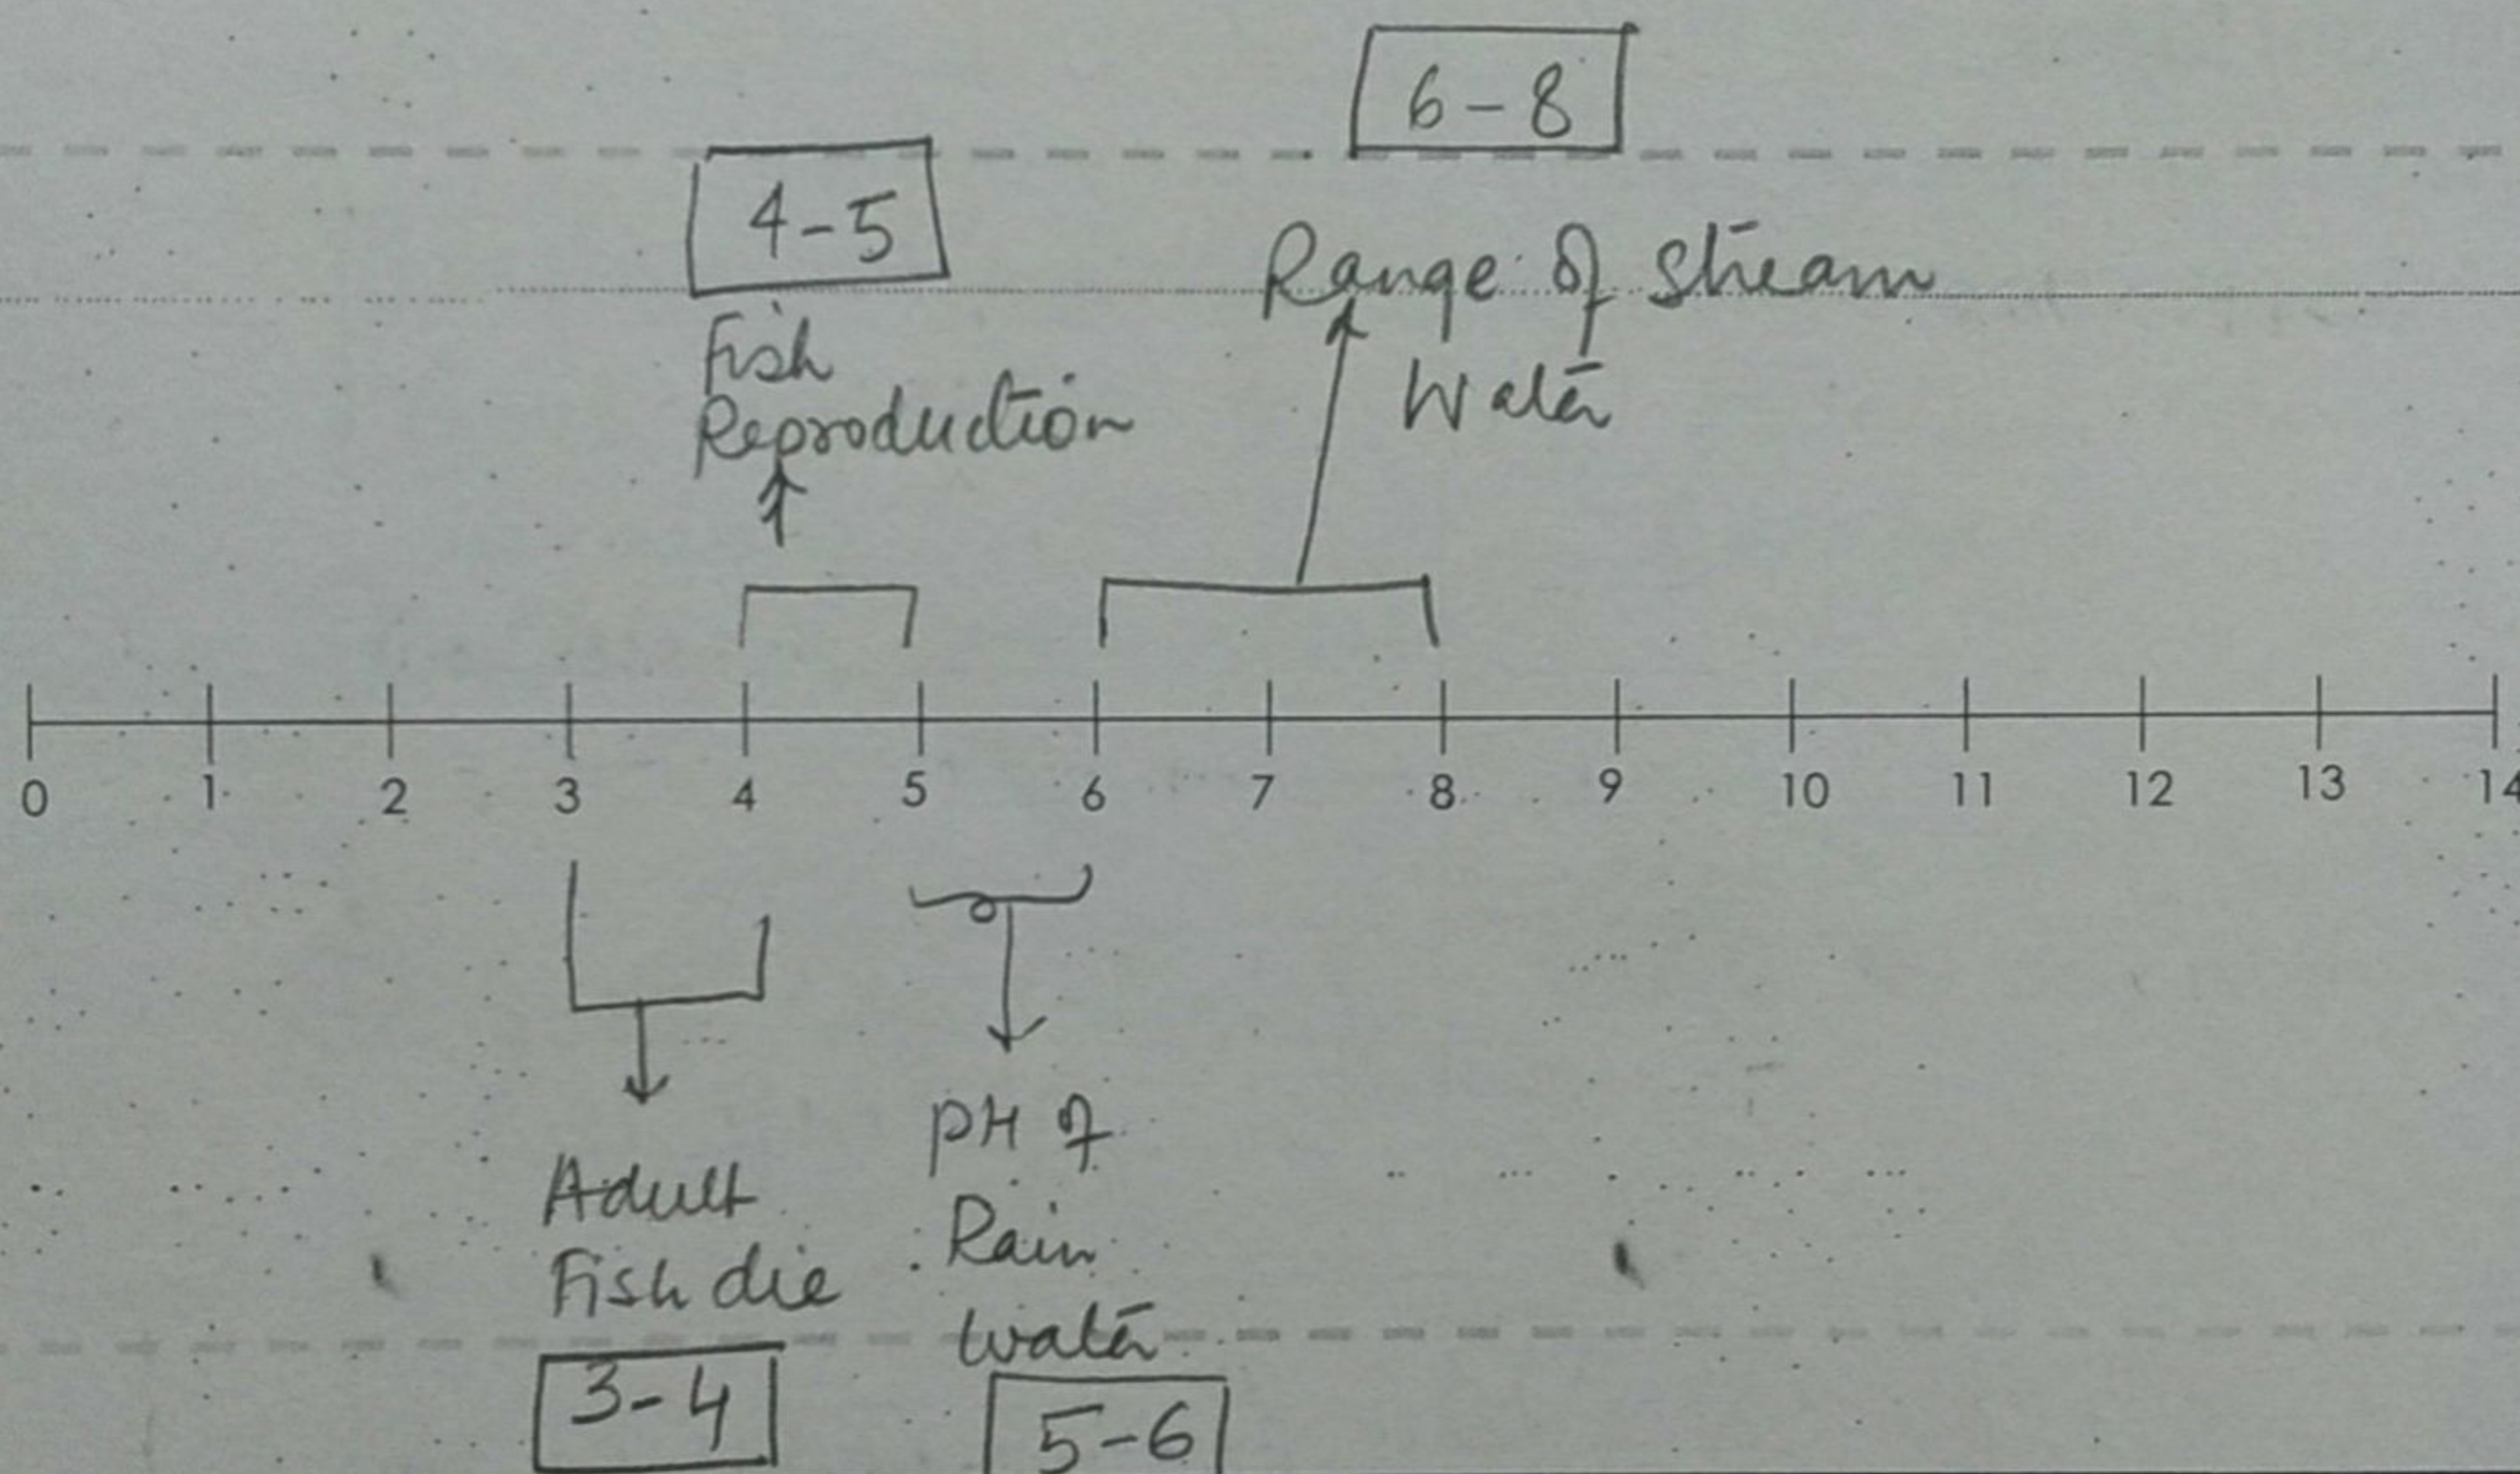 6-8
4-5
Range of stream
Water
Fish
Reproduction
0 1 2 3 4 5 6 7 8 9 10 11 12 13 14
Adult
Fish die
3-4
pH of
Rain
water
5-6